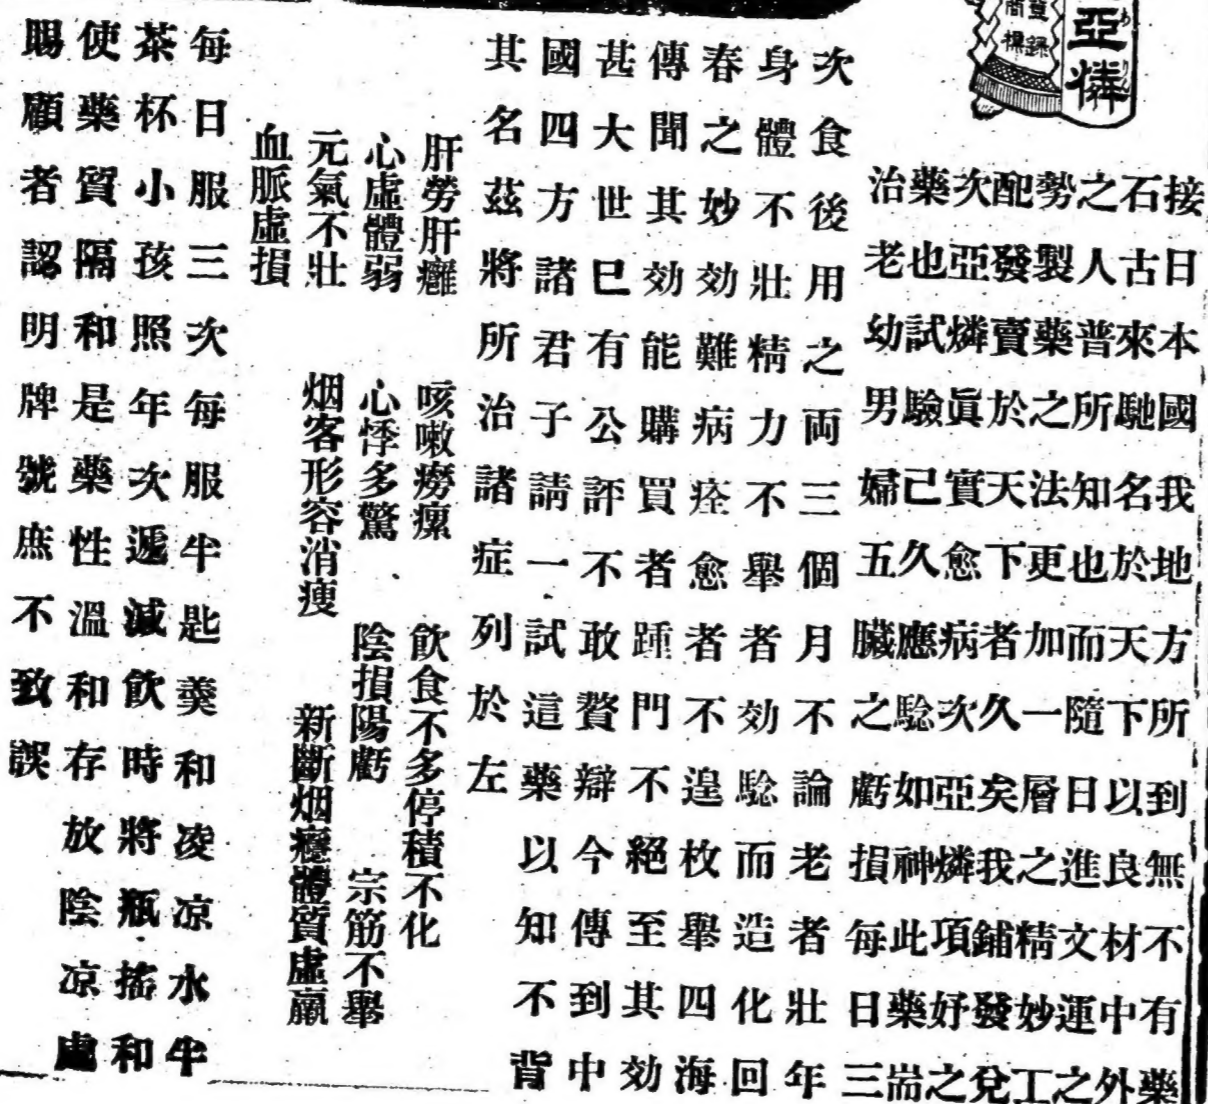 亞燐
ありん
登錄
商標
接日本國我地方所到無不有藥
石古來馳名於天下以良材中外
之人普所知也而隨日進文運之
勢製藥之法更加一層之精妙工
配發賣於天下者久矣我鋪發兌
次亞燐眞實愈病次亞燐項妤之
藥也試驗己久應騐如神此藥耑
治老幼男婦五臟之虧損每日三
次食後用之両三個月不論老者壯年
身體不壯精力不舉者効騐而造化回
春之妙効難病痊愈者不遑枚舉四海
傳聞其効能購買者踵門不絕至其効
甚大世巳有公評不敢贅辯今傳到中
國四方諸君子請一試這藥以知不背
其名茲將所治諸症列於左
肝勞肝癰 咳嗽癆瘰 飲食不多停積不化
心虛體弱 心悸多驚 陰損陽虧 宗筋不舉
元氣不壯 烟客形容消瘦 新斷烟癮體質虛羸
血脈虛損
每日服三次每服半匙羹和凌凉水半
茶杯小孩照年次遞減飲時將瓶搖和
使藥質隔和是藥性溫和存放陰凉處
賜顧者認明牌號庶不致誤